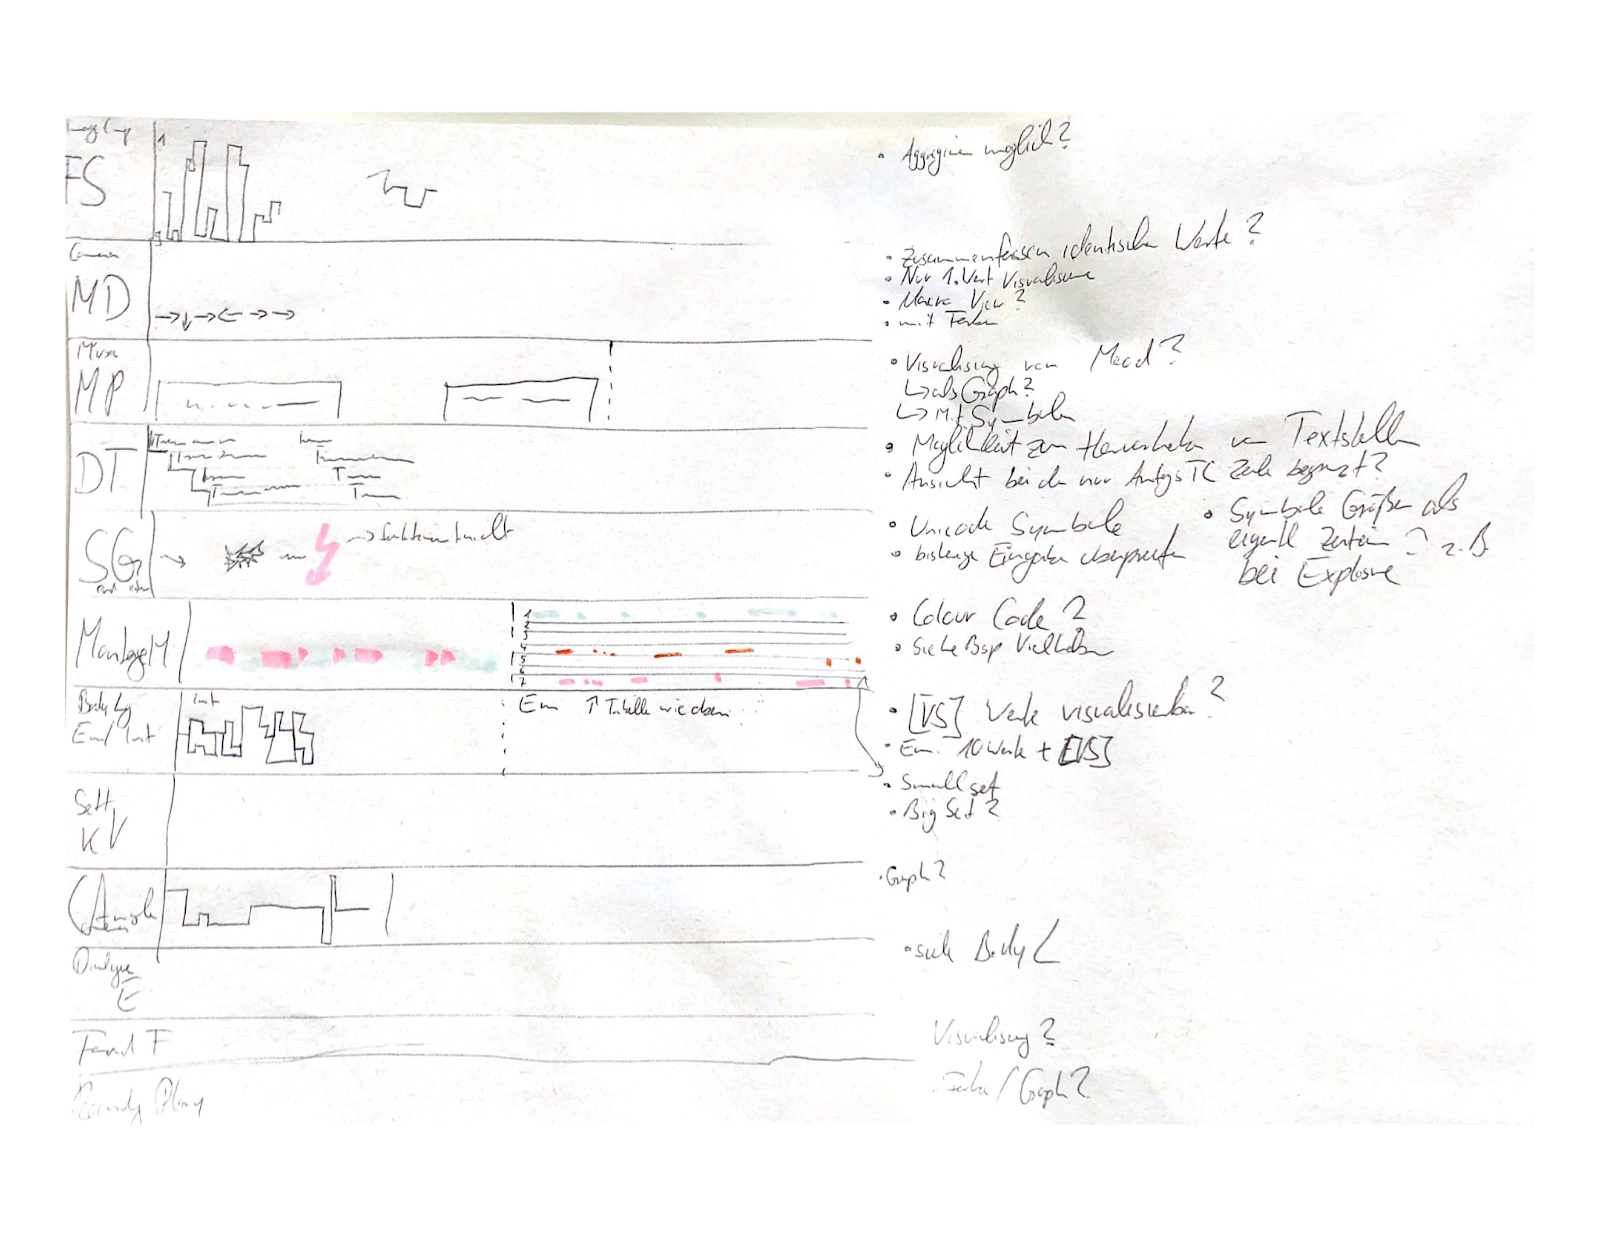 FS
1
• Aggregieren möglich?
Camera
MD
• Zusammenfassen identischer Werte?
• Nur 1. Wert Visualisieren
• Macro View?
• mit Farben
Music
MP
• Visualisierung von Mood?
↳ als Graph?
↳ Mit Symbolen
DT
• Möglichkeit zum Hervorheben von Textstellen
• Ansicht bei der nur TC Zeile begrenzt?
SG
→ funktioniert nicht
• Unicode Symbole
• bisherige Eingaben überprüfen
• Symbole Größer als
eigentl. Zeitein ? z.B.
bei Explosive
Montage M
1
2
3
4
5
6
7
• Colour Code?
• Siehe Bsp Vielhaben
Body Lg
Em/Int
int
Em ↑ Tabelle wie oben
• [VS] Werte visualisierbar?
• Em. 10 Werte + [VS]
Sett
KV
• Small set
• Big Set?
• Graph?
Dialogue
E
• siehe Body L
F
Visualisierung?
• Farbe / Graph?